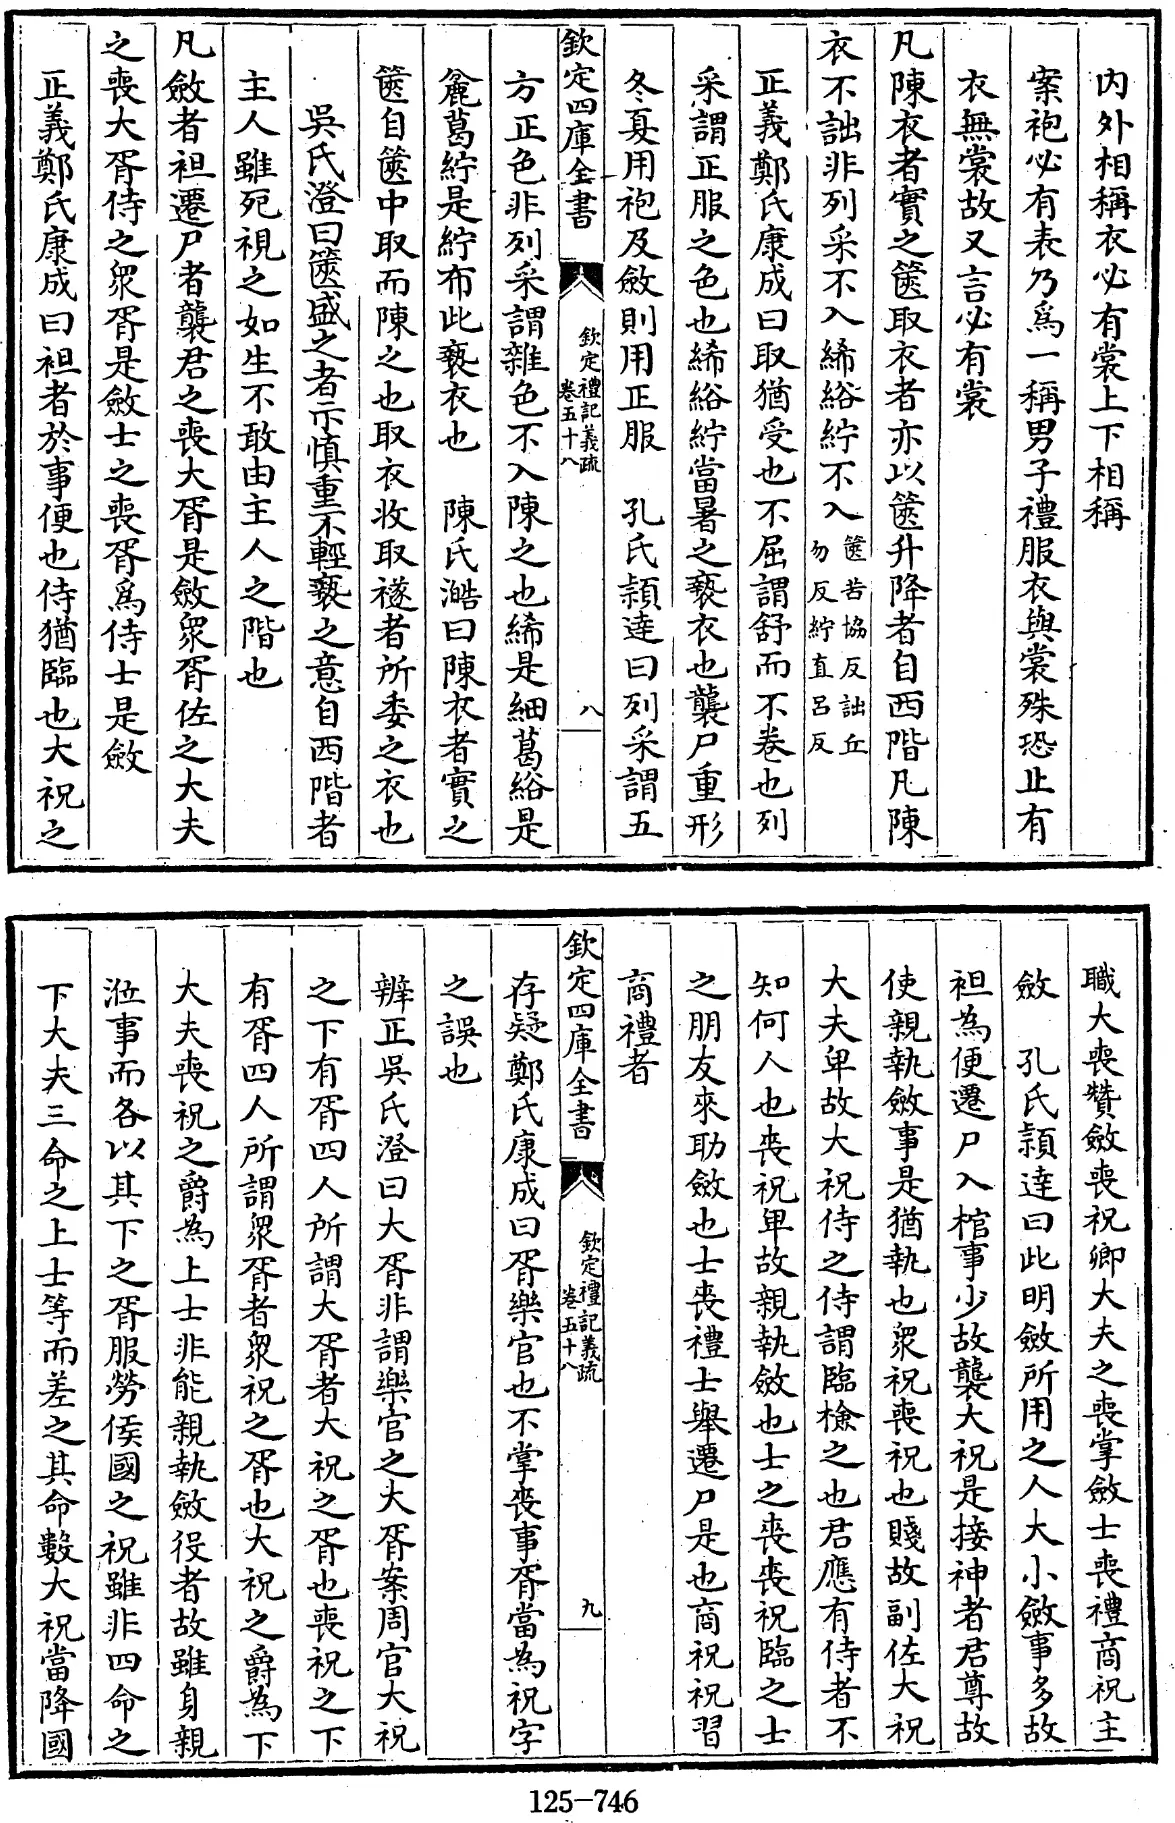 内外相稱衣必有裳上下相稱
案袍必有表乃爲一稱男子禮服衣與裳殊恐止有
衣無裳故又言必有裳
凡陳衣者實之篋取衣者亦以篋升降者自西階凡陳
衣不詘非列采不入絺綌紵不入篋苦協反詘丘
勿反紵直呂反
正義鄭氏康成曰取猶受也不屈謂舒而不卷也列
采謂正服之色也絺綌紵當暑之褻衣也襲尸重形
冬夏用袍及斂則用正服　孔氏頴逹曰列采謂五
欽定四庫全書
欽定禮記義疏
卷五十八
八
方正色非列采謂雜色不入陳之也絺是細葛綌是
麄葛紵是紵布此褻衣也　陳氏澔曰陳衣者實之
篋自篋中取而陳之也取衣收取襚者所委之衣也
吳氏澄曰篋盛之者示慎重不輕褻之意自西階者
主人雖死視之如生不敢由主人之階也
凡斂者袒遷尸者襲君之喪大胥是斂衆胥佐之大夫
之喪大胥侍之衆胥是斂士之喪胥爲侍士是斂
正義鄭氏康成曰袒者於事便也侍猶臨也大祝之
職大喪贊斂喪祝卿大夫之喪掌斂士喪禮商祝主
斂　孔氏頴逹曰此明斂所用之人大小斂事多故
袒為便遷尸入棺事少故襲大祝是接神者君尊故
使親執斂事是猶執也衆祝喪祝也賤故副佐大祝
大夫卑故大祝侍之侍謂臨檢之也君應有侍者不
知何人也喪祝卑故親執斂也士之喪喪祝臨之士
之朋友來助斂也士喪禮士舉遷尸是也商祝祝習
商禮者
欽定四庫全書
欽定禮記義疏
卷五十八
九
存疑鄭氏康成曰胥樂官也不掌喪事胥當為祝字
之誤也
辨正吳氏澄曰大胥非謂樂官之大胥案周官大祝
之下有胥四人所謂大胥者大祝之胥也喪祝之下
有胥四人所謂衆胥者衆祝之胥也大祝之爵為下
大夫喪祝之爵為上士非能親執斂役者故雖身親
涖事而各以其下之胥服勞侯國之祝雖非四命之
下大夫三命之上士等而差之其命數大祝當降國
125-746